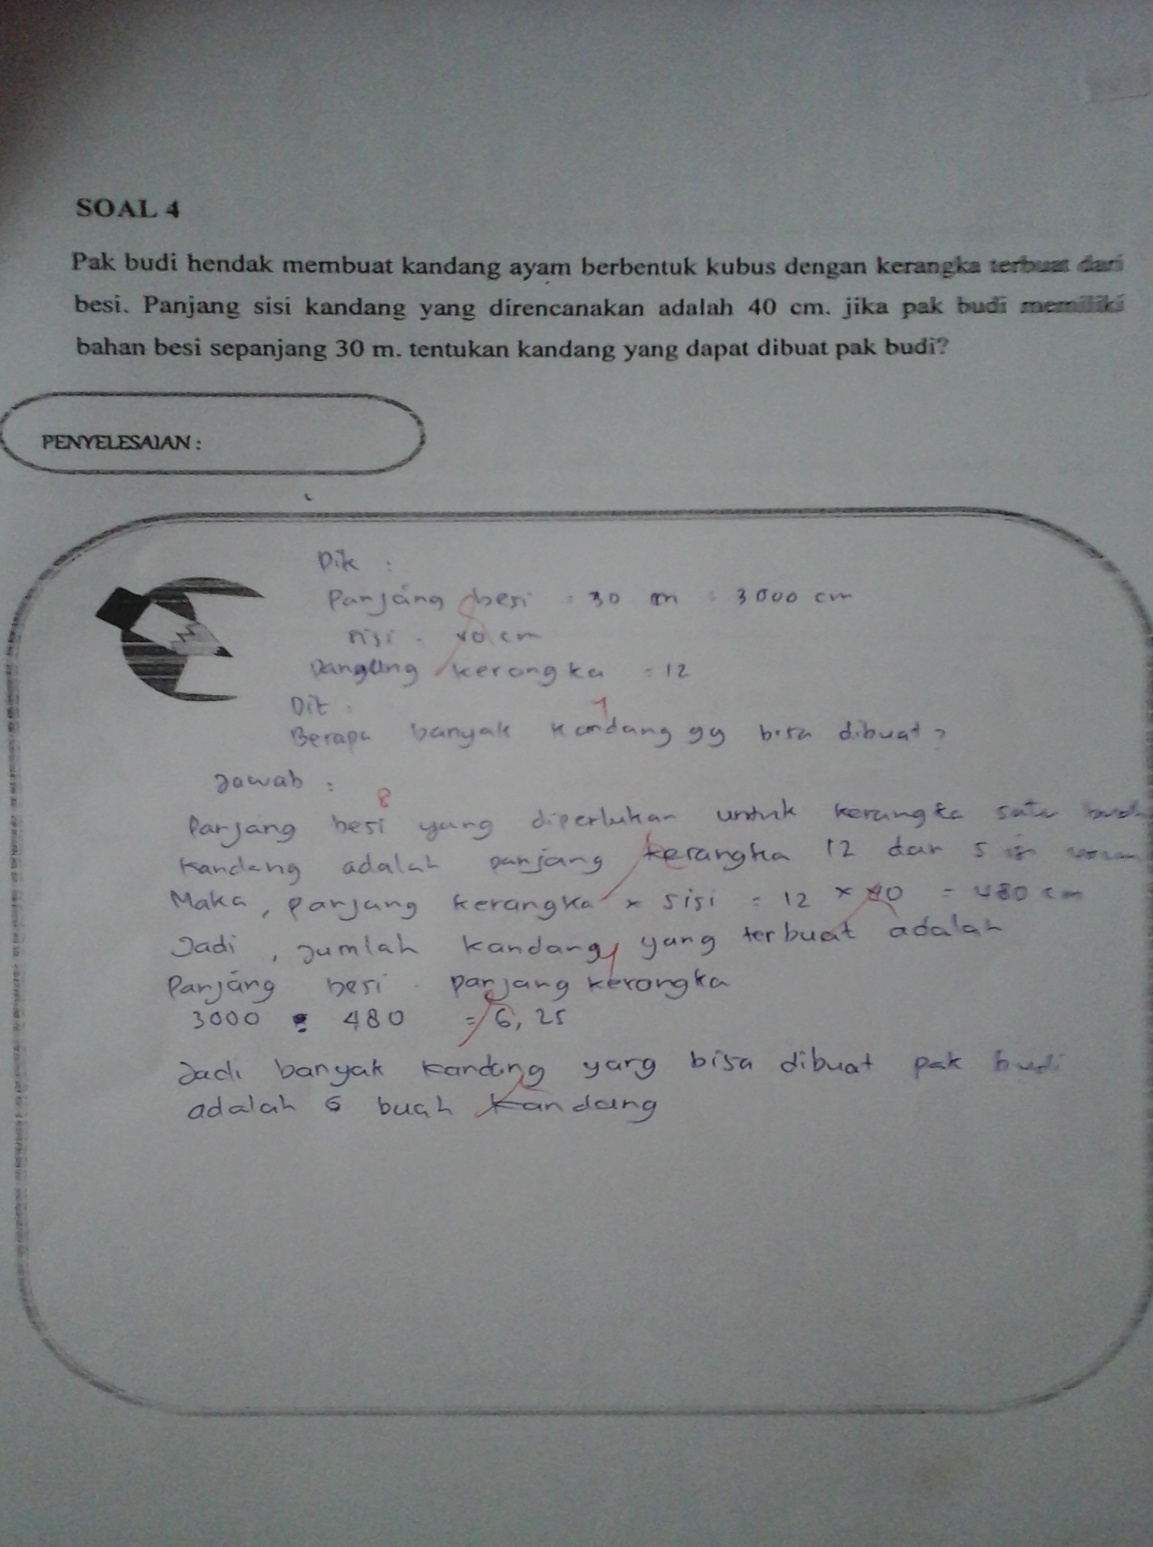 SOAL 4
Pak budi hendak membuat kandang ayam berbentuk kubus dengan kerangka terbuat dari
besi. Panjang sisi kandang yang direncanakan adalah 40 cm. jika pak budi memiliki
bahan besi sepanjang 30 m. tentukan kandang yang dapat dibuat pak budi?
PENYELESAIAN :
Dik :
Panjang besi : 30 m = 3000 cm
sisi = 40 cm
Panjang kerangka = 12
Dit :
1
Berapa banyak kandang yg bisa dibuat ?
Jawab :
8
Panjang besi yang diperlukan untuk kerangka satu
kandang adalah panjang kerangka 12 dan
Maka, panjang kerangka x sisi = 12 x 40 = 480 cm
Jadi, jumlah kandang yang terbuat adalah
Panjang besi : panjang kerangka
3000 : 480 = 6,25
Jadi banyak kandang yang bisa dibuat pak budi
adalah 6 buah kandang